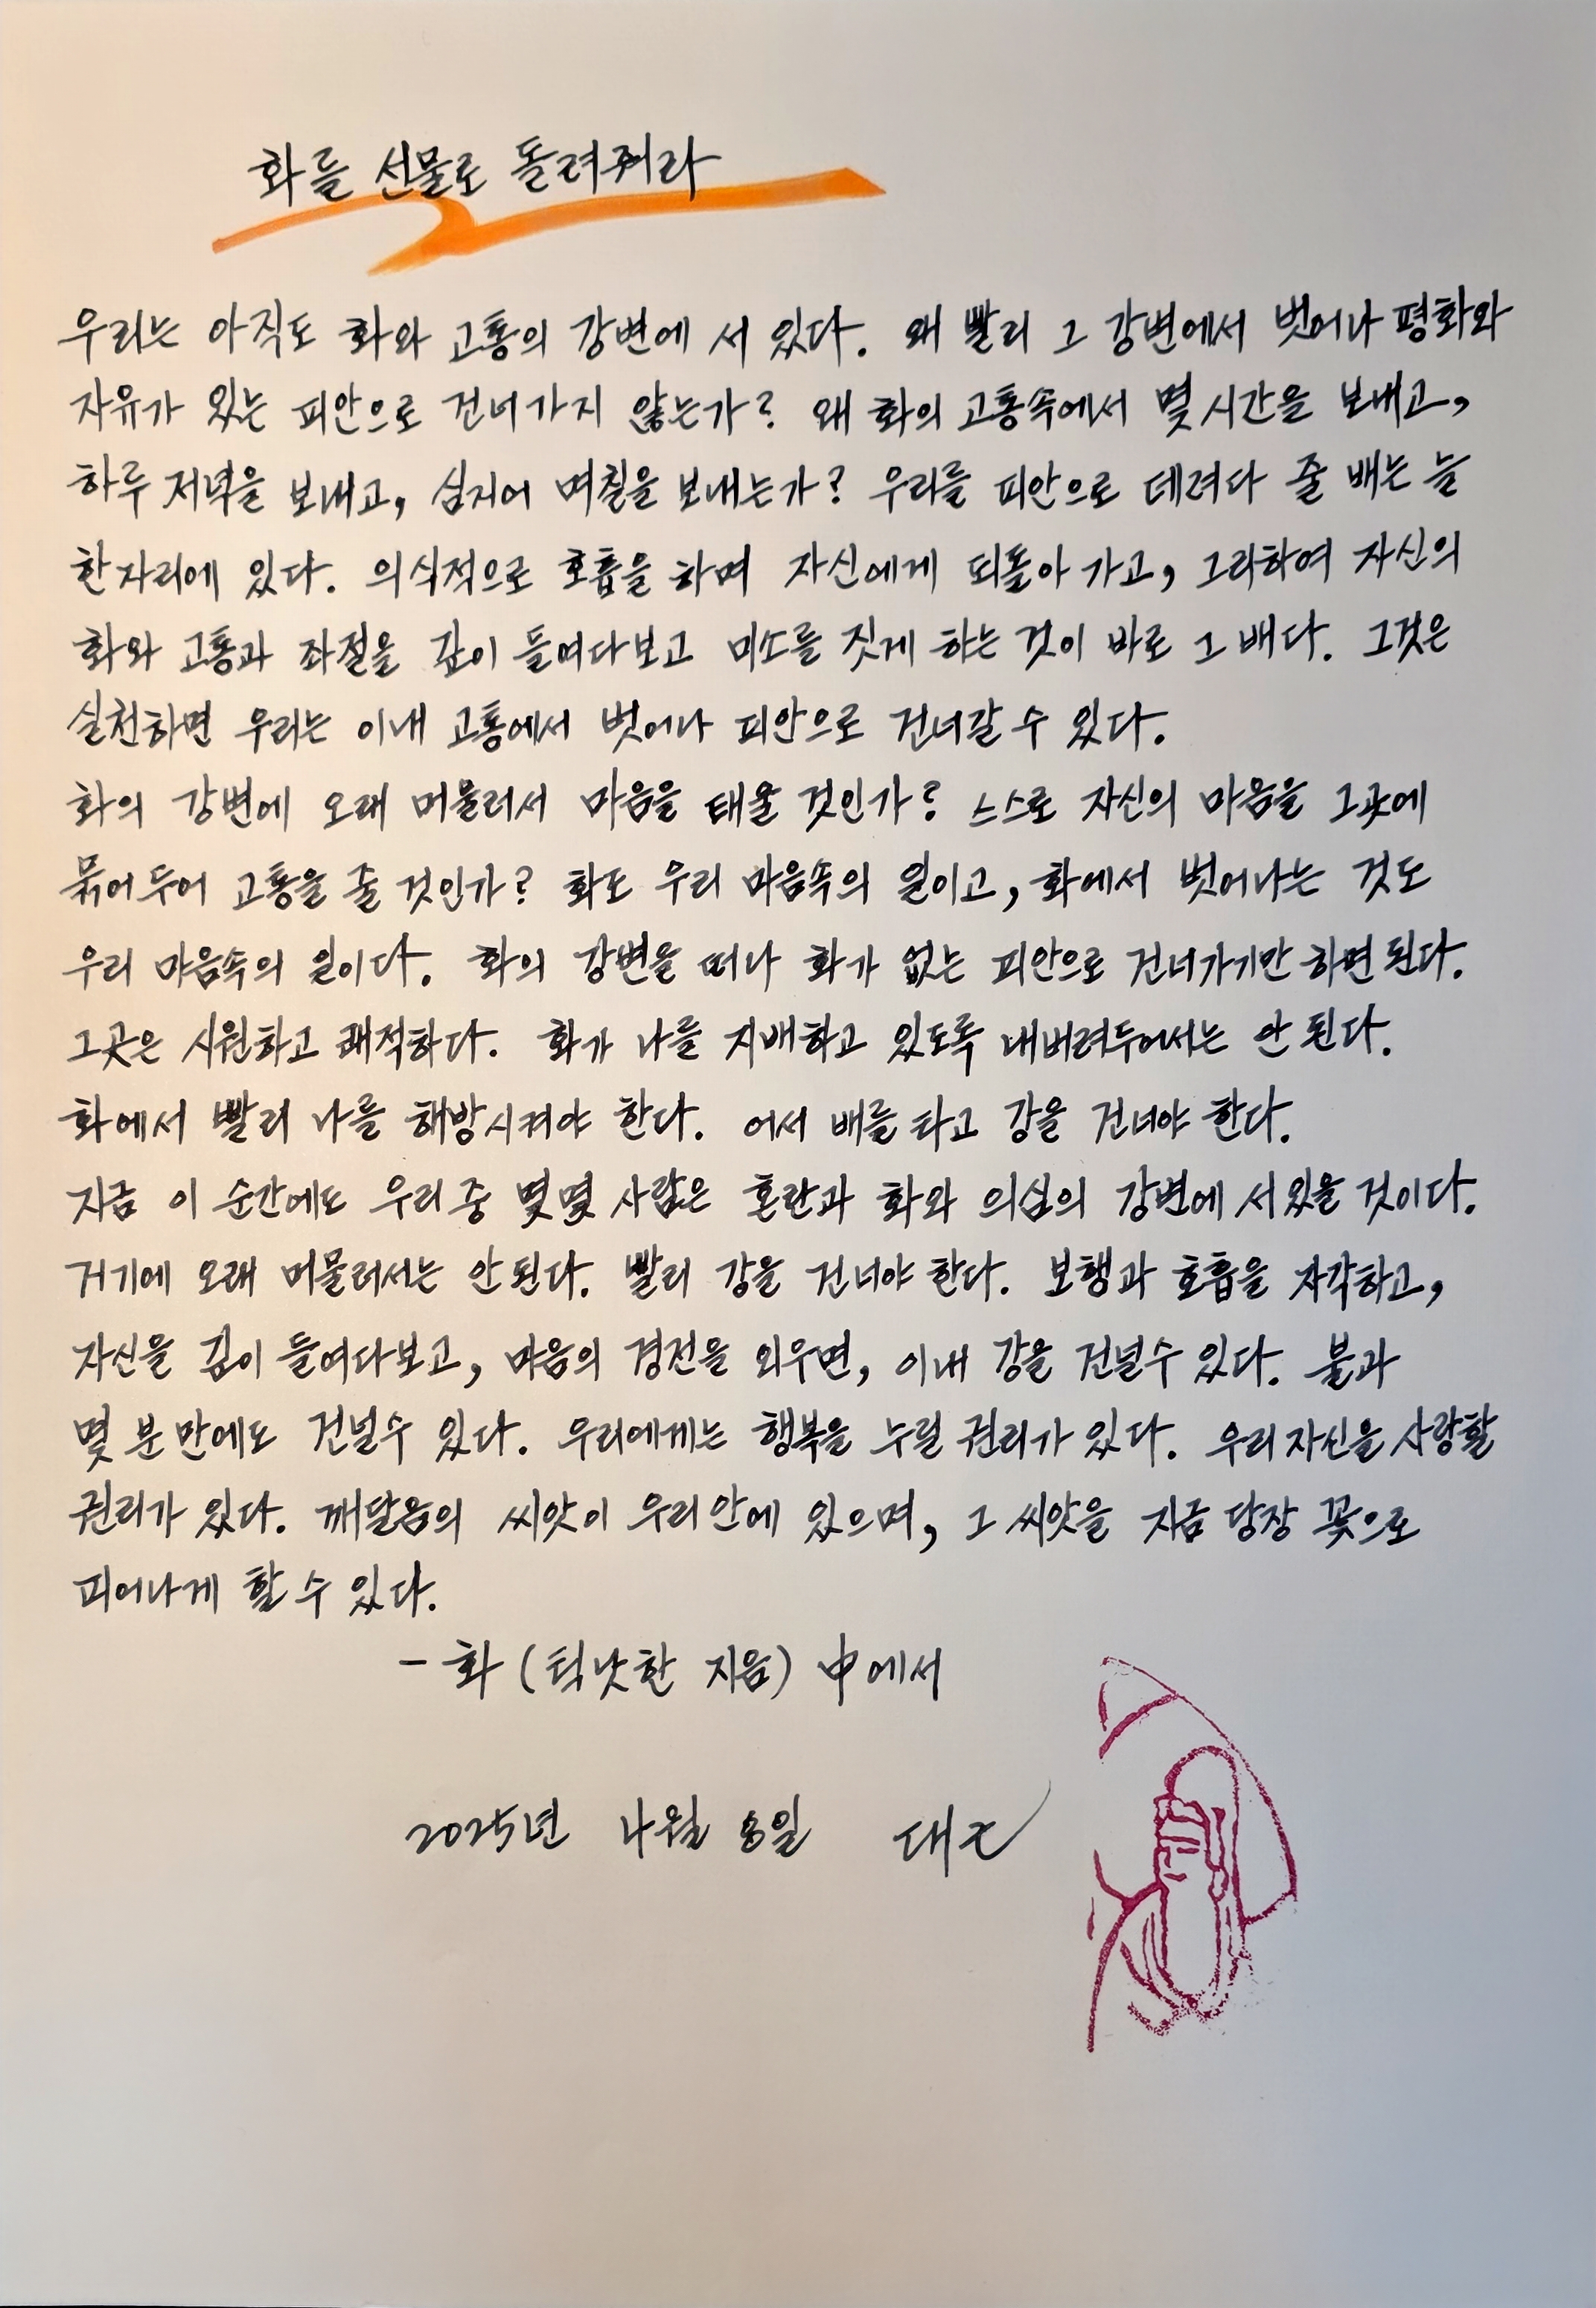 화를 선물로 돌려줘라
우리는 아직도 화와 고통의 강변에 서 있다. 왜 빨리 그 강변에서 벗어나 평화와
자유가 있는 피안으로 건너가지 않는가? 왜 화의 고통속에서 몇 시간을 보내고,
하루 저녁을 보내고, 심지어 며칠을 보내는가? 우리를 피안으로 데려다 줄 배는 늘
한자리에 있다. 의식적으로 호흡을 하며 자신에게 되돌아 가고, 그리하여 자신의
화와 고통과 좌절을 깊이 들여다보고 미소를 짓게 하는 것이 바로 그 배다. 그것은
실천하면 우리는 이내 고통에서 벗어나 피안으로 건너갈 수 있다.
화의 강변에 오래 머물러서 마음을 태울 것인가? 스스로 자신의 마음을 그곳에
묶어 두어 고통을 줄 것인가? 화도 우리 마음속의 일이고, 화에서 벗어나는 것도
우리 마음속의 일이다. 화의 강변을 떠나 화가 없는 피안으로 건너가기만 하면 된다.
그곳은 시원하고 쾌적하다. 화가 나를 지배하고 있도록 내버려두어서는 안 된다.
화에서 빨리 나를 해방시켜야 한다. 어서 배를 타고 강을 건너야 한다.
지금 이 순간에도 우리 중 몇몇 사람은 혼란과 화와 의심의 강변에 서있을 것이다.
거기에 오래 머물러서는 안 된다. 빨리 강을 건너야 한다. 보행과 호흡을 자각하고,
자신을 깊이 들여다보고, 마음의 경전을 외우면, 이내 강을 건널수 있다. 불과
몇 분 만에도 건널수 있다. 우리에게는 행복을 누릴 권리가 있다. 우리 자신을 사랑할
권리가 있다. 깨달음의 씨앗이 우리 안에 있으며, 그 씨앗을 지금 당장 꽃으로
피어나게 할 수 있다.
- 화 (틱낫한 지음) 中에서
2025년 4월 8일